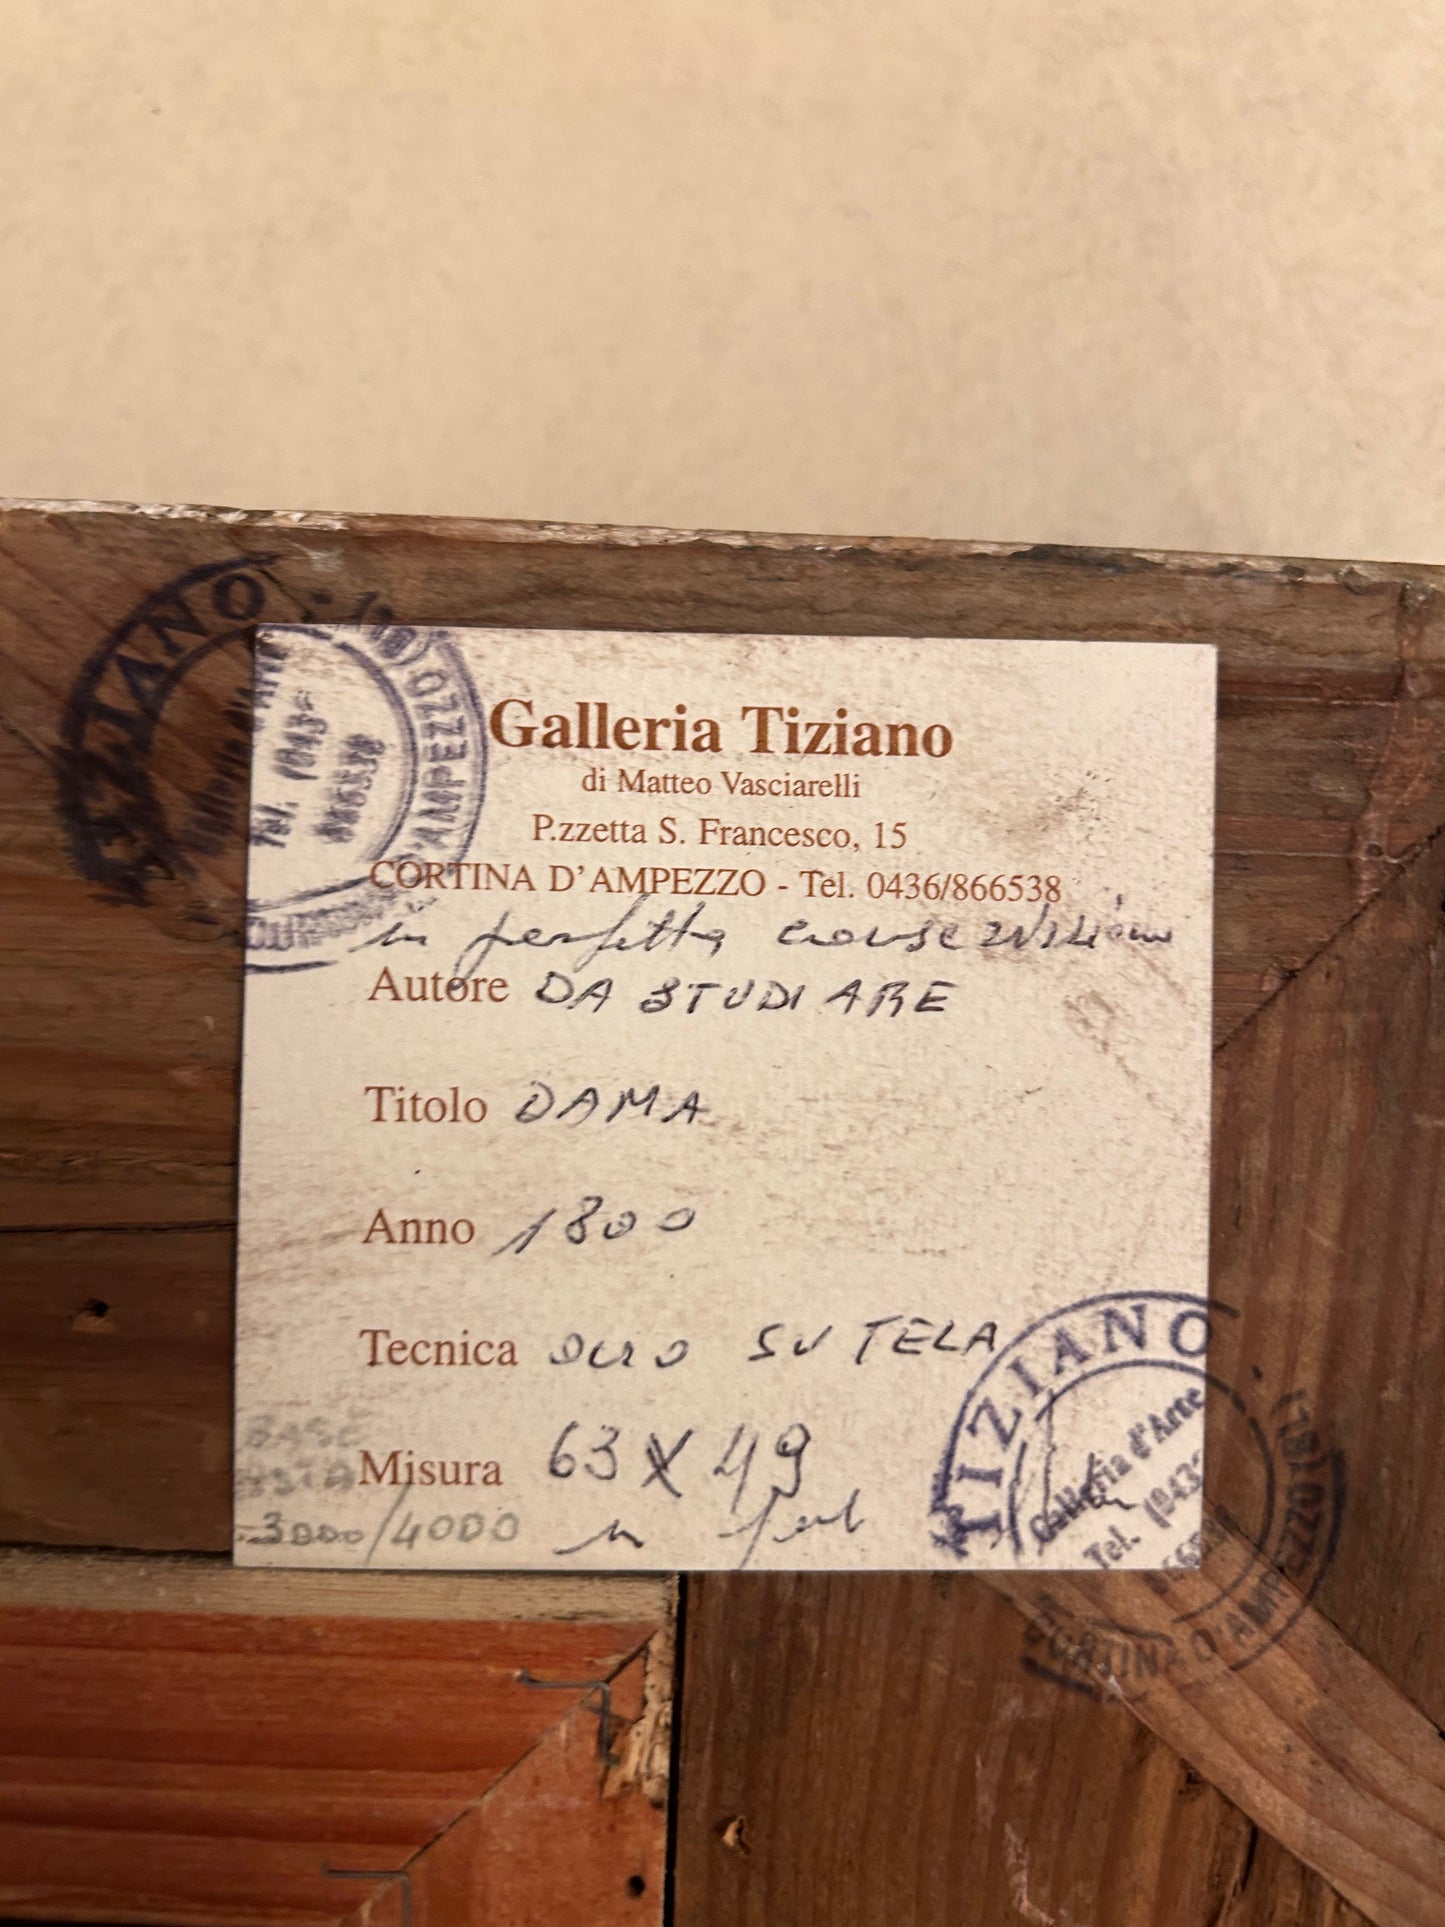 Galleria Tiziano
di Matteo Vasciarelli
P.zzetta S. Francesco, 15
CORTINA D'AMPEZZO - Tel. 0436/866538
in perfetta
Autore DA STUDIARE
Titolo DAMA
Anno 1800
Tecnica OLIO SU TELA
Misura 63 X 49
BASE
ASTA
3000/4000
in
TIZIANO
Tel. 0436
866538
D'AMPEZZO (BL)
TIZIANO
Galleria d'Arte
Tel. 0436
CORTINA D'AMPEZZO (BL)